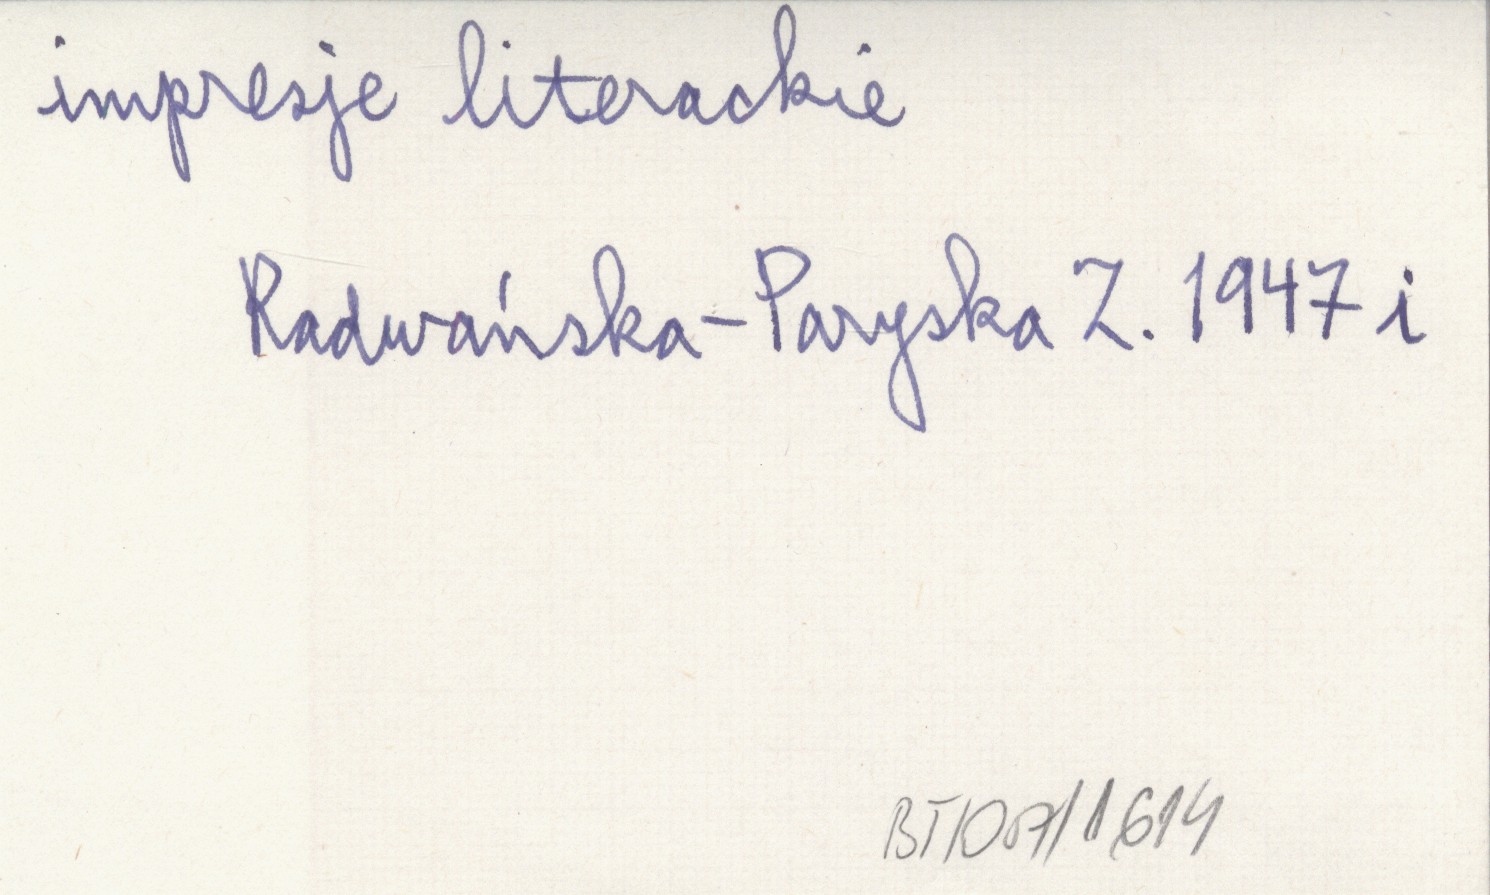 impresje literackie
Radwańska-Paryska Z. 1947 i
BT/007/1614